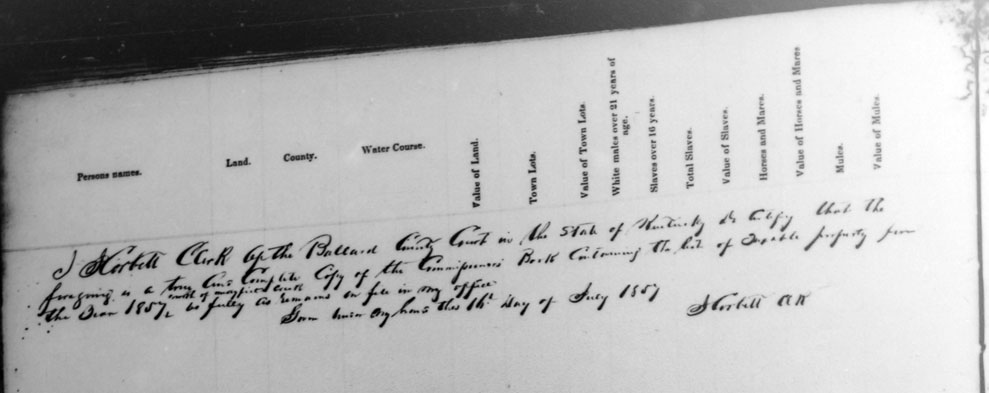 Persons names. Land. County. Water Course. Value of Land. Town Lots. Value of Town Lots. White males over 21 years of age. Slaves over 16 years. Total Slaves. Value of Slaves. Horses and Mares. Value of Horses and Mares Mules. Value of Mules.
I Corbett Clerk of the Ballard County Court in the State of Kentucky do certify that the
foregoing is a true and Complete Copy of the Commissioners Book Containing the list of Taxable property from
west of mayfield creek
the Year 1857 as fully as remains on file in my office
Given under my hand this 1st Day of July 1857
Corbett Clk